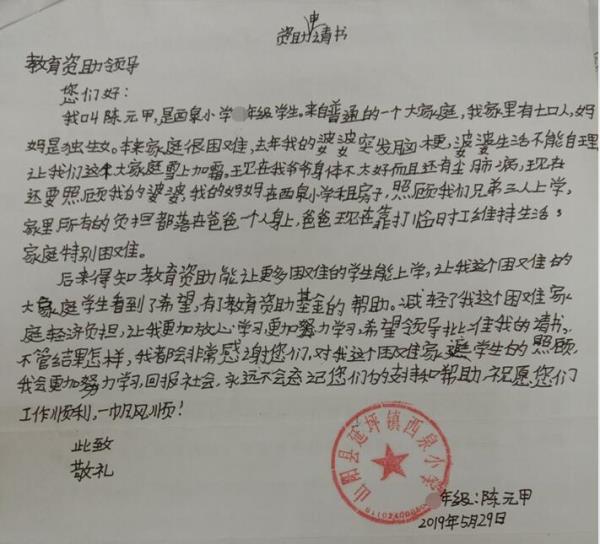 资助申请书
教育资助领导
您们好:
我叫陈元甲,是西泉小学年级学生,来自普通的一个大家庭,我家里有七口人,妈
妈是独生女。本来家庭很困难,去年我的婆婆突发脑梗,婆婆生活不能自理
让我们这个大家庭雪上加霜。现在我爷爷身体不太好而且还有尘肺病,现在
还要照顾我的婆婆,我的妈妈在西泉小学租房子,照顾我们兄弟三人上学,
家里所有的负担都落在爸爸一个人身上,爸爸现在靠打临时工维持生活;
家庭特别困难。
后来得知教育资助能让更多困难的学生能上学,让我这个困难的
大家庭学生看到了希望,有了教育资助基金的帮助。减轻了我这个困难家
庭经济负担,让我更加放心学习更加努力学习,希望领导批准我的请书。
不管结果怎样,我都会非常感谢您们,对我这个困难家庭学生的照顾,
我会更加努力学习,回报社会,永远不会忘记您们的支持和帮助,祝愿您们
工作顺利,一帆风顺!
此致
敬礼
山阳县延坪镇西泉小学
年级:陈元甲
2019年5月29日